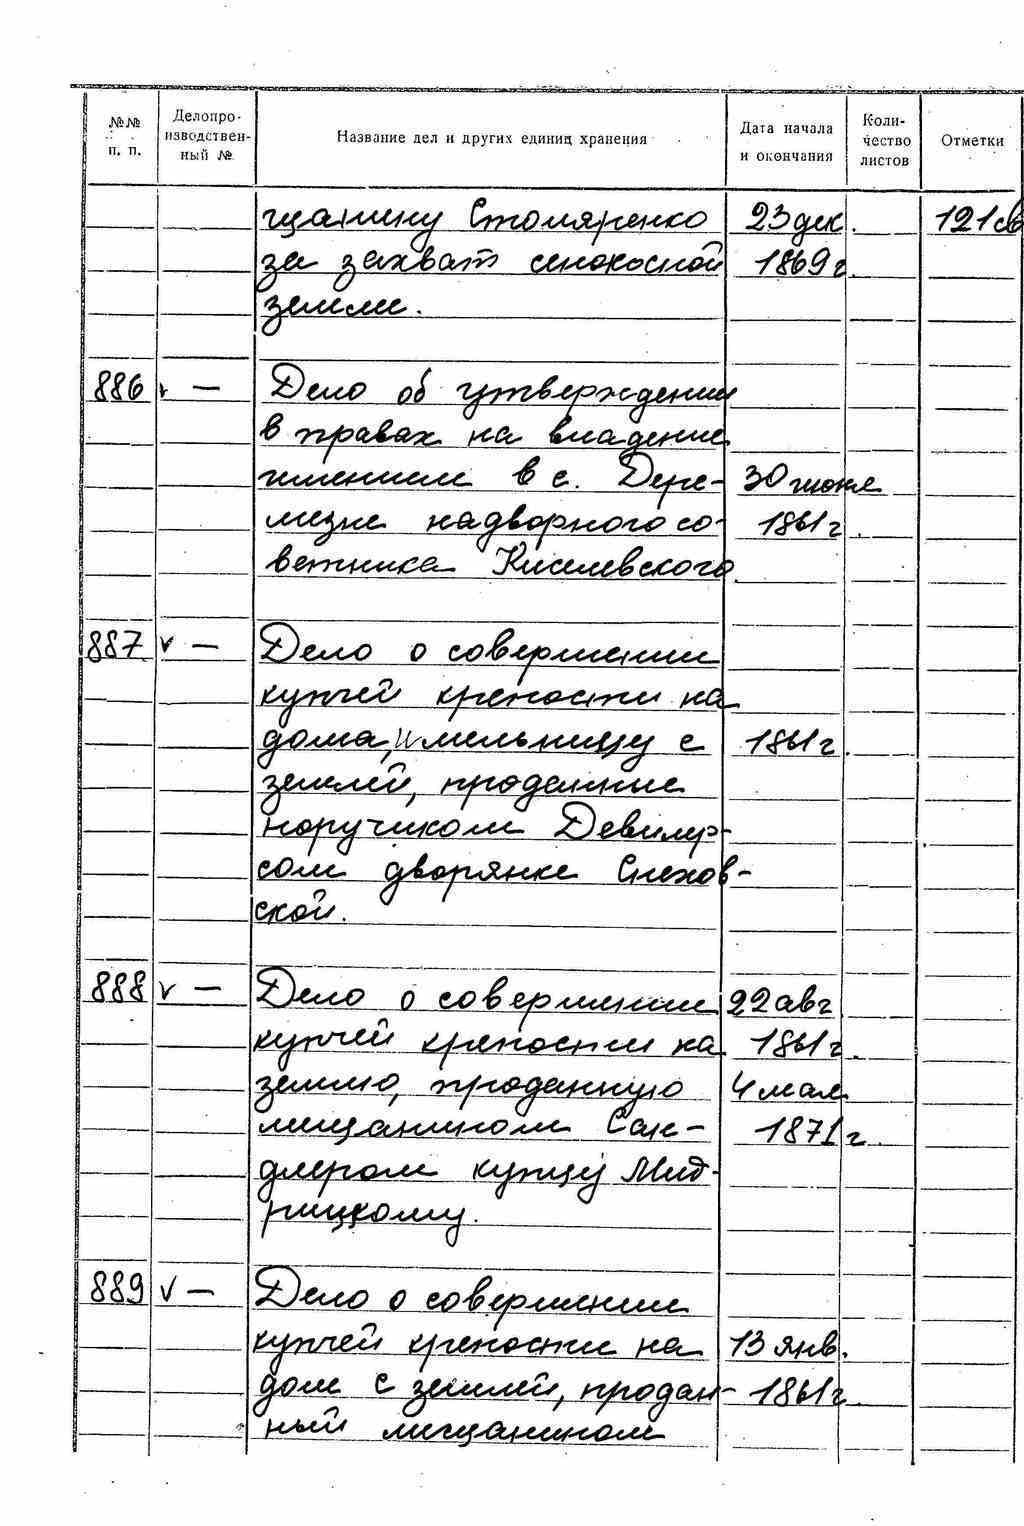 №№ п. п.
Делопро-
изводствен-
ный №
Название дел и других единиц хранения
Дата начала
и окончания
Коли-
чество
листов
Отметки
щанину Столяренко 23 дек. 121 св
за захват сенокосной 1869 г.
земли.
886 v — Дело об утверждении
в правах на владение
имением в с. Дере- 30 июня
мезне надворного со- 1861 г.
ветника Киселевского.
887 v — Дело о совершении
купчей крепости на
дома, и мельницу с 1861 г.
землей, проданные
поручиком Девильер-
сом дворянке Снехов-
ской.
888 v — Дело о совершении 22 авг
купчей крепости на 1861 г.
землю, проданную 4 мая
мещанином Сан- 1871 г.
длером купцу Мид-
рицкому.
889 v — Дело о совершении
купчей крепости на 13 янв.
дом с землей, продан- 1861 г.
ный мещанином